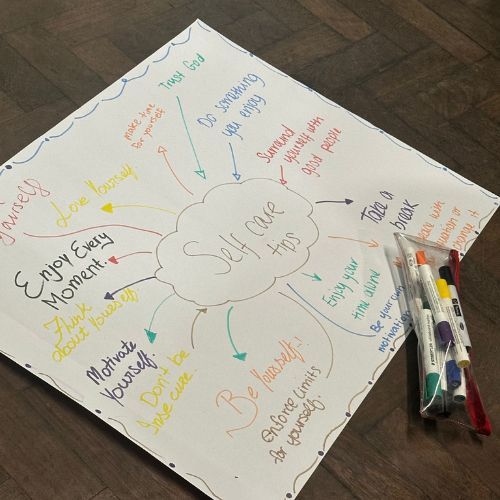 Self care
tips
Trust God
Do something
you enjoy
Surround
yourself with
good people
Take a
break
with
or
it
Be your own
motivation
Enjoy your
time alone
Enforce limits
for yourself.
Be Yourself!!
Don't be
Inse cure.
Motivate
Yourself.
Think
about Yourself
Enjoy Every
Moment.
Love Yourself.
make time
for yourself